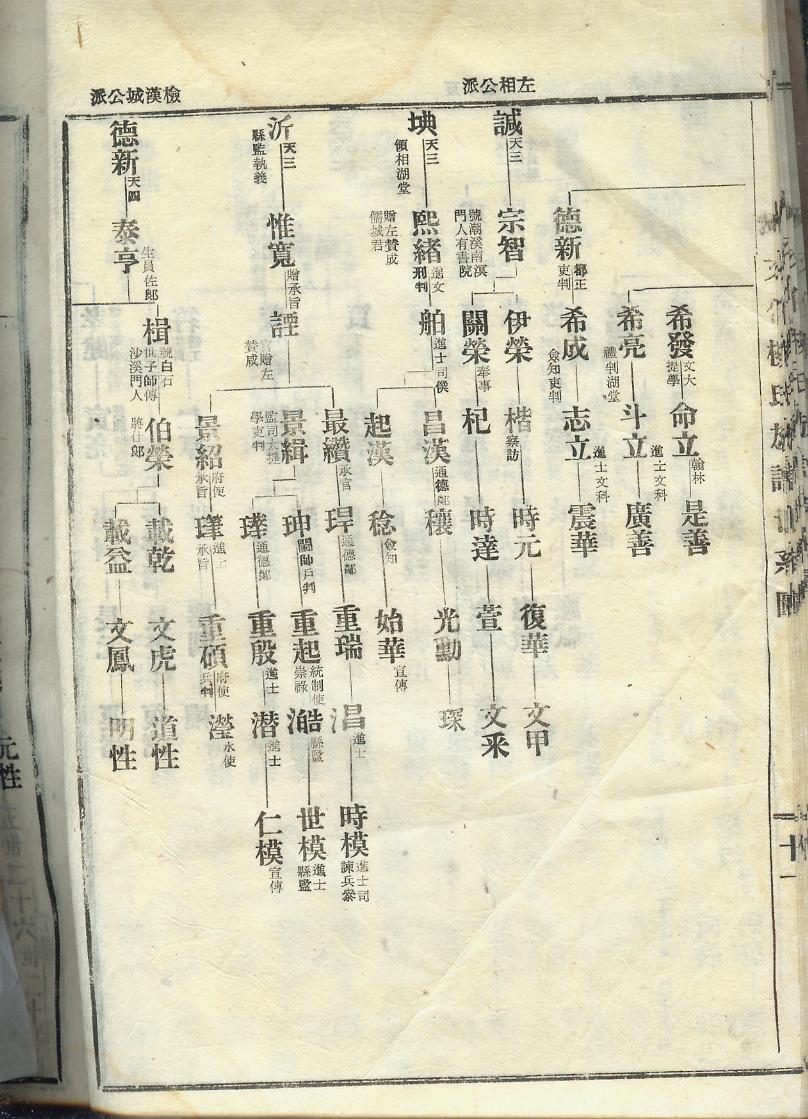 左相公派
檢漢城公派
希發 文大提學
命立 翰林
是善
希亮 禮判湖堂
斗立 進士文科
廣善
德新 都正吏判
希成 僉知吏判
志立 進士文科
震華
誠 天三
宗智 號潮溪南溟門人有書院
伊榮
楷 察訪
時元
復華
文甲
關榮 奉事
杞
時達
萱
文釆
㙉 天三 領相湖堂
熙緖 進文刑判 贈左贊成儒城君
舶 進士司僕
昌漢 通德郞
穰
光勳
琛
起漢
稔 僉知
始華 宣傳
沂 天三 縣監執義
惟寬 贈承旨
諲 贈左贊成
最纘 承宣
琾 通德郞
重瑞
淐 進士
時模 進士司諫兵參
景緝 監司大提學吏判
珅 閫帥戶判
重起 統制使崇祿
澔 縣監
世模 進士縣監
通德郞
重殷 進士
潜 進士
仁模 宣傳
景紹 府使承旨
進士承旨
重碩 府使兵判
瀅 水使
德新 天四
泰亨 生員佐郞
楫 號白石世子師傅沙溪門人
伯榮 將仕郞
載乾
文虎
道性
載益
文鳳
明性
十一
元性